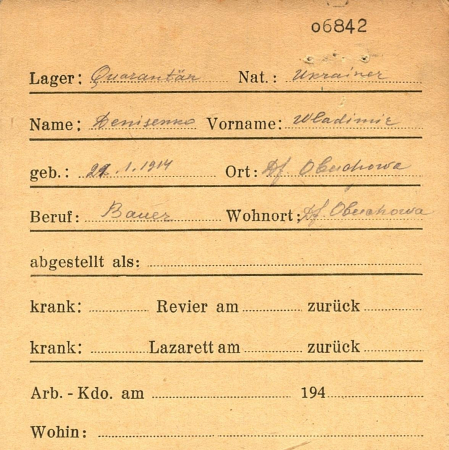 06842
Lager: Quarantän Nat.: Ukrainer
Name: Denisenko Vorname: Wladimir
geb.: 21.1.1914 Ort: Df. Obuchowa
Beruf: Bauer Wohnort: Df. Obuchowa
abgestellt als:
krank: Revier am zurück
krank: Lazarett am zurück
Arb.-Kdo. am 194
Wohin: